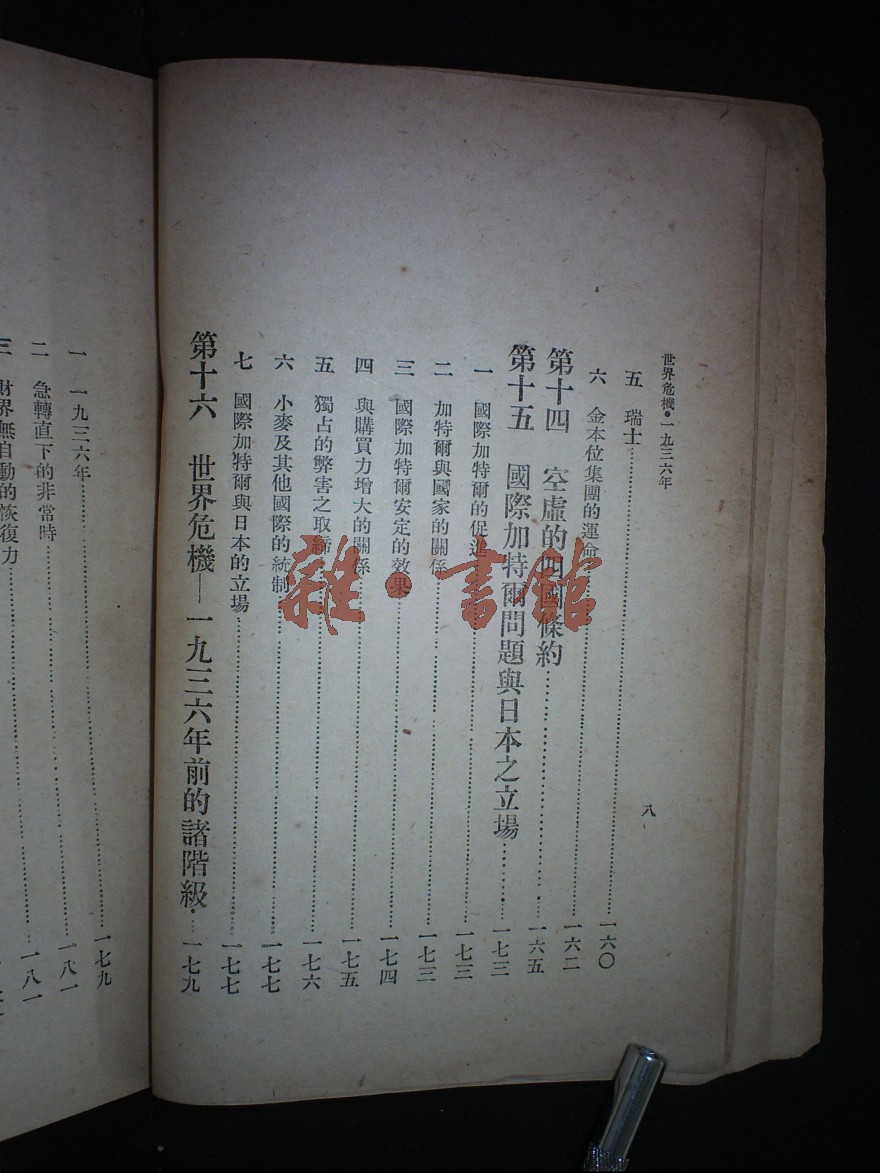 世界危機·一九三六年
八
五 瑞士……一六〇
六 金本位集團的運命……一六二
第十四 空虛的四國條約……一六五
第十五 國際加特爾問題與日本之立場……一七三
一 國際加特爾的促進……一七三
二 加特爾與國家的關係……一七三
三 國際加特爾安定的效果……一七四
四 與購買力增大的關係……一七五
五 獨占的弊害之取締……一七六
六 小麥及其他國際的統制……一七七
七 國際加特爾與日本的立場……一七七
第十六 世界危機——一九三六年前的諸階級……一七九
一 一九三六年……一七九
二 急轉直下的非常時……一八一
三 財界無自動的恢復力……一八一
雜·書館